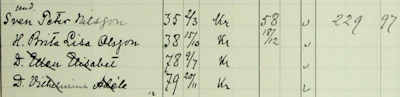 und.
Sven Peter Nilsson 35 2/3 Kr 58 v 229 97
H. Brita Lisa Olsson 38 15/10 Kr 18/12 v
D. Ellen Elisabet 78 9/7 Kr v
D. Vilhelmina Adèle 79 20/11 Kr v